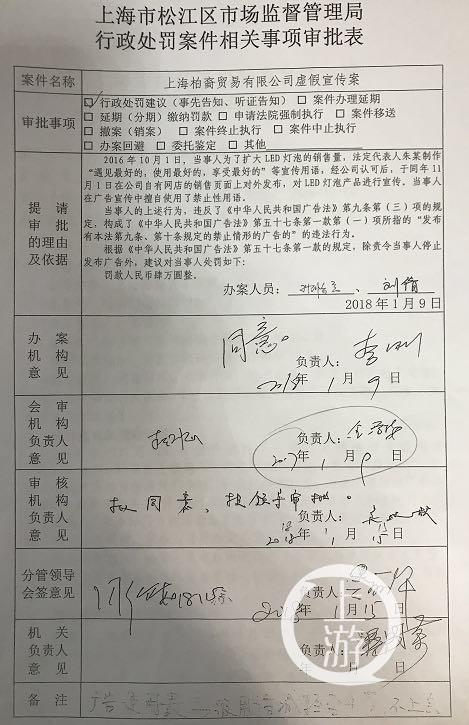 上海市松江区市场监督管理局
行政处罚案件相关事项审批表
案件名称 上海柏裔贸易有限公司虚假宣传案
审批事项
☑行政处罚建议（事先告知、听证告知）□案件办理延期
□延期（分期）缴纳罚款□申请法院强制执行□案件移送
□撤案（销案）□案件终止执行□案件中止执行
□办案回避□委托鉴定□其他
提请审批的理由及依据
2016年10月1日，当事人为了扩大LED灯泡的销售量，法定代表人朱某制作
“遇见最好的，使用最好的，享受最好的”等宣传用语，经公司认可后，于同年11
月1日在公司自有网店的销售页面上对外发布，对LED灯泡产品进行宣传。当事人
在广告宣传中擅自使用了禁止性用语。
当事人的上述行为，违反了《中华人民共和国广告法》第九条第（三）项的规
定，构成了《中华人民共和国广告法》第五十七条第一款第（一）项所指的“发布
有本法第九条、第十条规定的禁止情形的广告的”的违法行为。
根据《中华人民共和国广告法》第五十七条第一款的规定，除责令当事人停止
发布广告外，建议对当事人处罚如下：
罚款人民币肆万圆整。
办案人员：
2018年1月9日
办案机构意见
同意。
负责人：
2018年1月9日
会审机构负责人意见
负责人：
2017年1月9日
审核机构负责人意见
拟同意、报领导审批。
负责人：
2018年1月15日
分管领导会签意见
2018年1月15日
机关负责人意见
负责人：
年 月 日
备注
上游